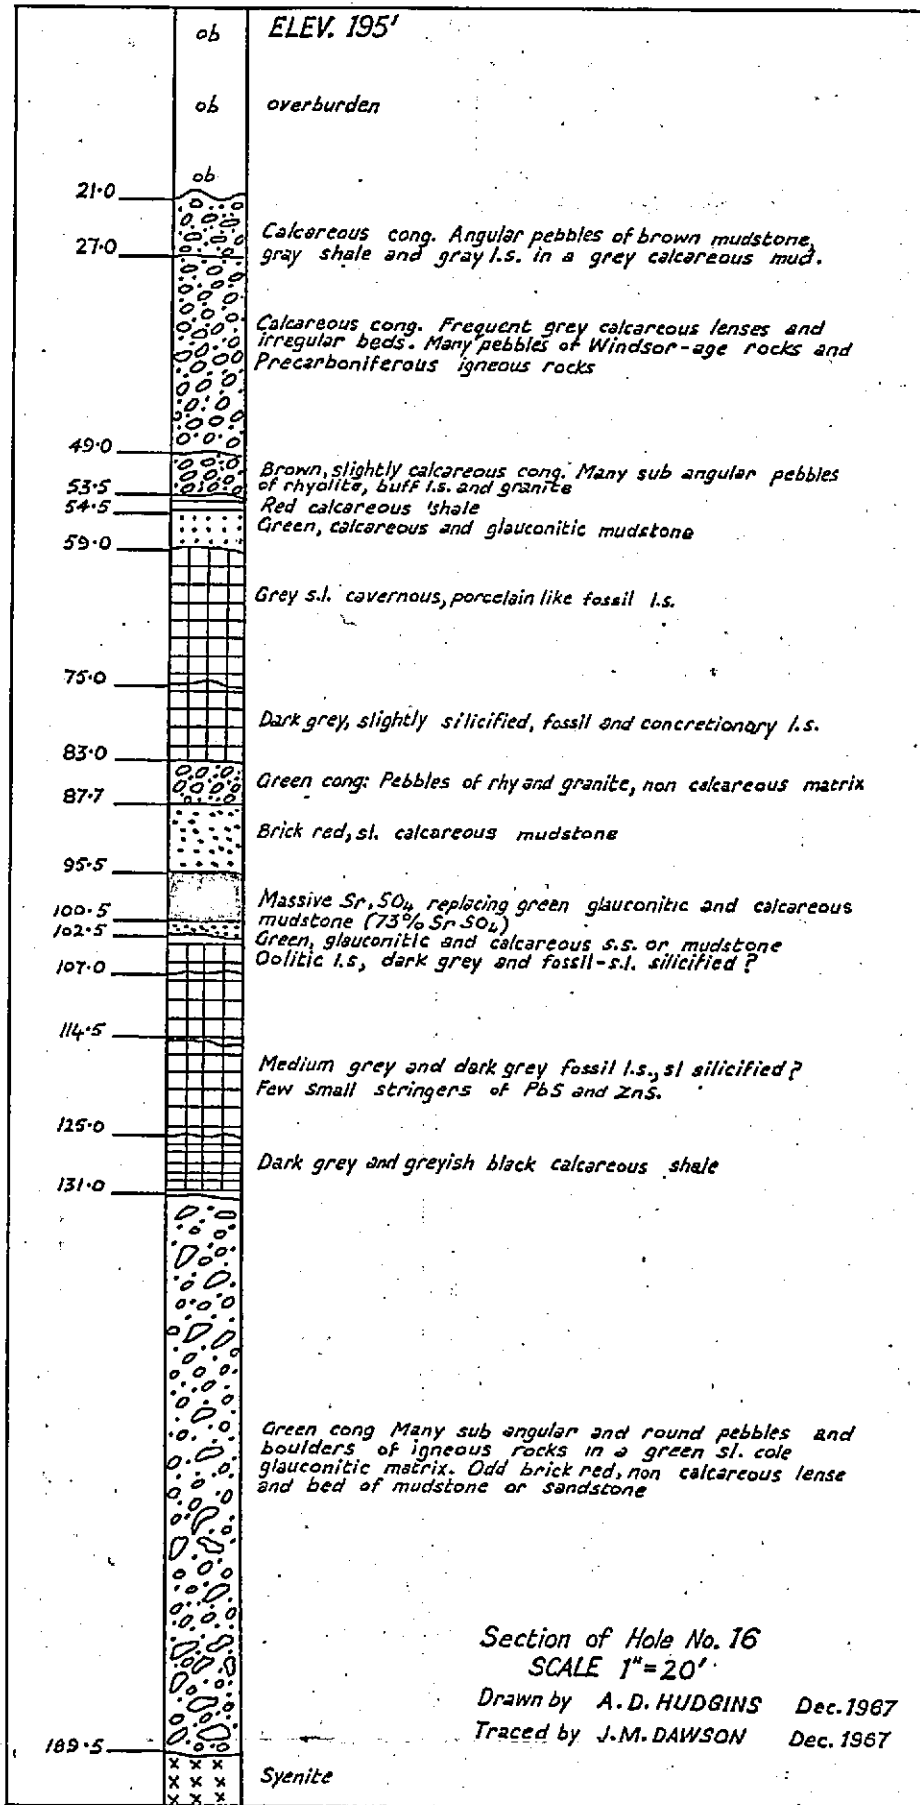 ob
ELEV. 195'
ob
overburden
ob
21.0
Calcareous cong. Angular pebbles of brown mudstone,
27.0
gray shale and gray l.s. in a grey calcareous mud.
Calcareous cong. Frequent grey calcareous lenses and
irregular beds. Many pebbles of Windsor-age rocks and
Precarboniferous igneous rocks
49.0
Brown, slightly calcareous cong. Many sub angular pebbles
53.5
of rhyolite, buff l.s. and granite
54.5
Red calcareous shale
Green, calcareous and glauconitic mudstone
59.0
Grey s.l. cavernous, porcelain like fossil l.s.
75.0
Dark grey, slightly silicified, fossil and concretionary l.s.
83.0
Green cong: Pebbles of rhy and granite, non calcareous matrix
87.7
Brick red, sl. calcareous mudstone
95.5
Massive Sr, SO4 replacing green glauconitic and calcareous
100.5
mudstone (73% Sr SO4)
102.5
Green, glauconitic and calcareous s.s. or mudstone
Oolitic l.s, dark grey and fossil-s.l. silicified?
107.0
114.5
Medium grey and dark grey fossil l.s., sl silicified?
Few small stringers of PbS and ZnS.
125.0
Dark grey and greyish black calcareous shale
131.0
Green cong Many sub angular and round pebbles and
boulders of igneous rocks in a green sl. cole
glauconitic matrix. Odd brick red, non calcareous lense
and bed of mudstone or sandstone
Section of Hole No. 16
SCALE 1"=20'
Drawn by A.D. HUDGINS Dec. 1967
Traced by J.M. DAWSON Dec. 1967
189.5
Syenite